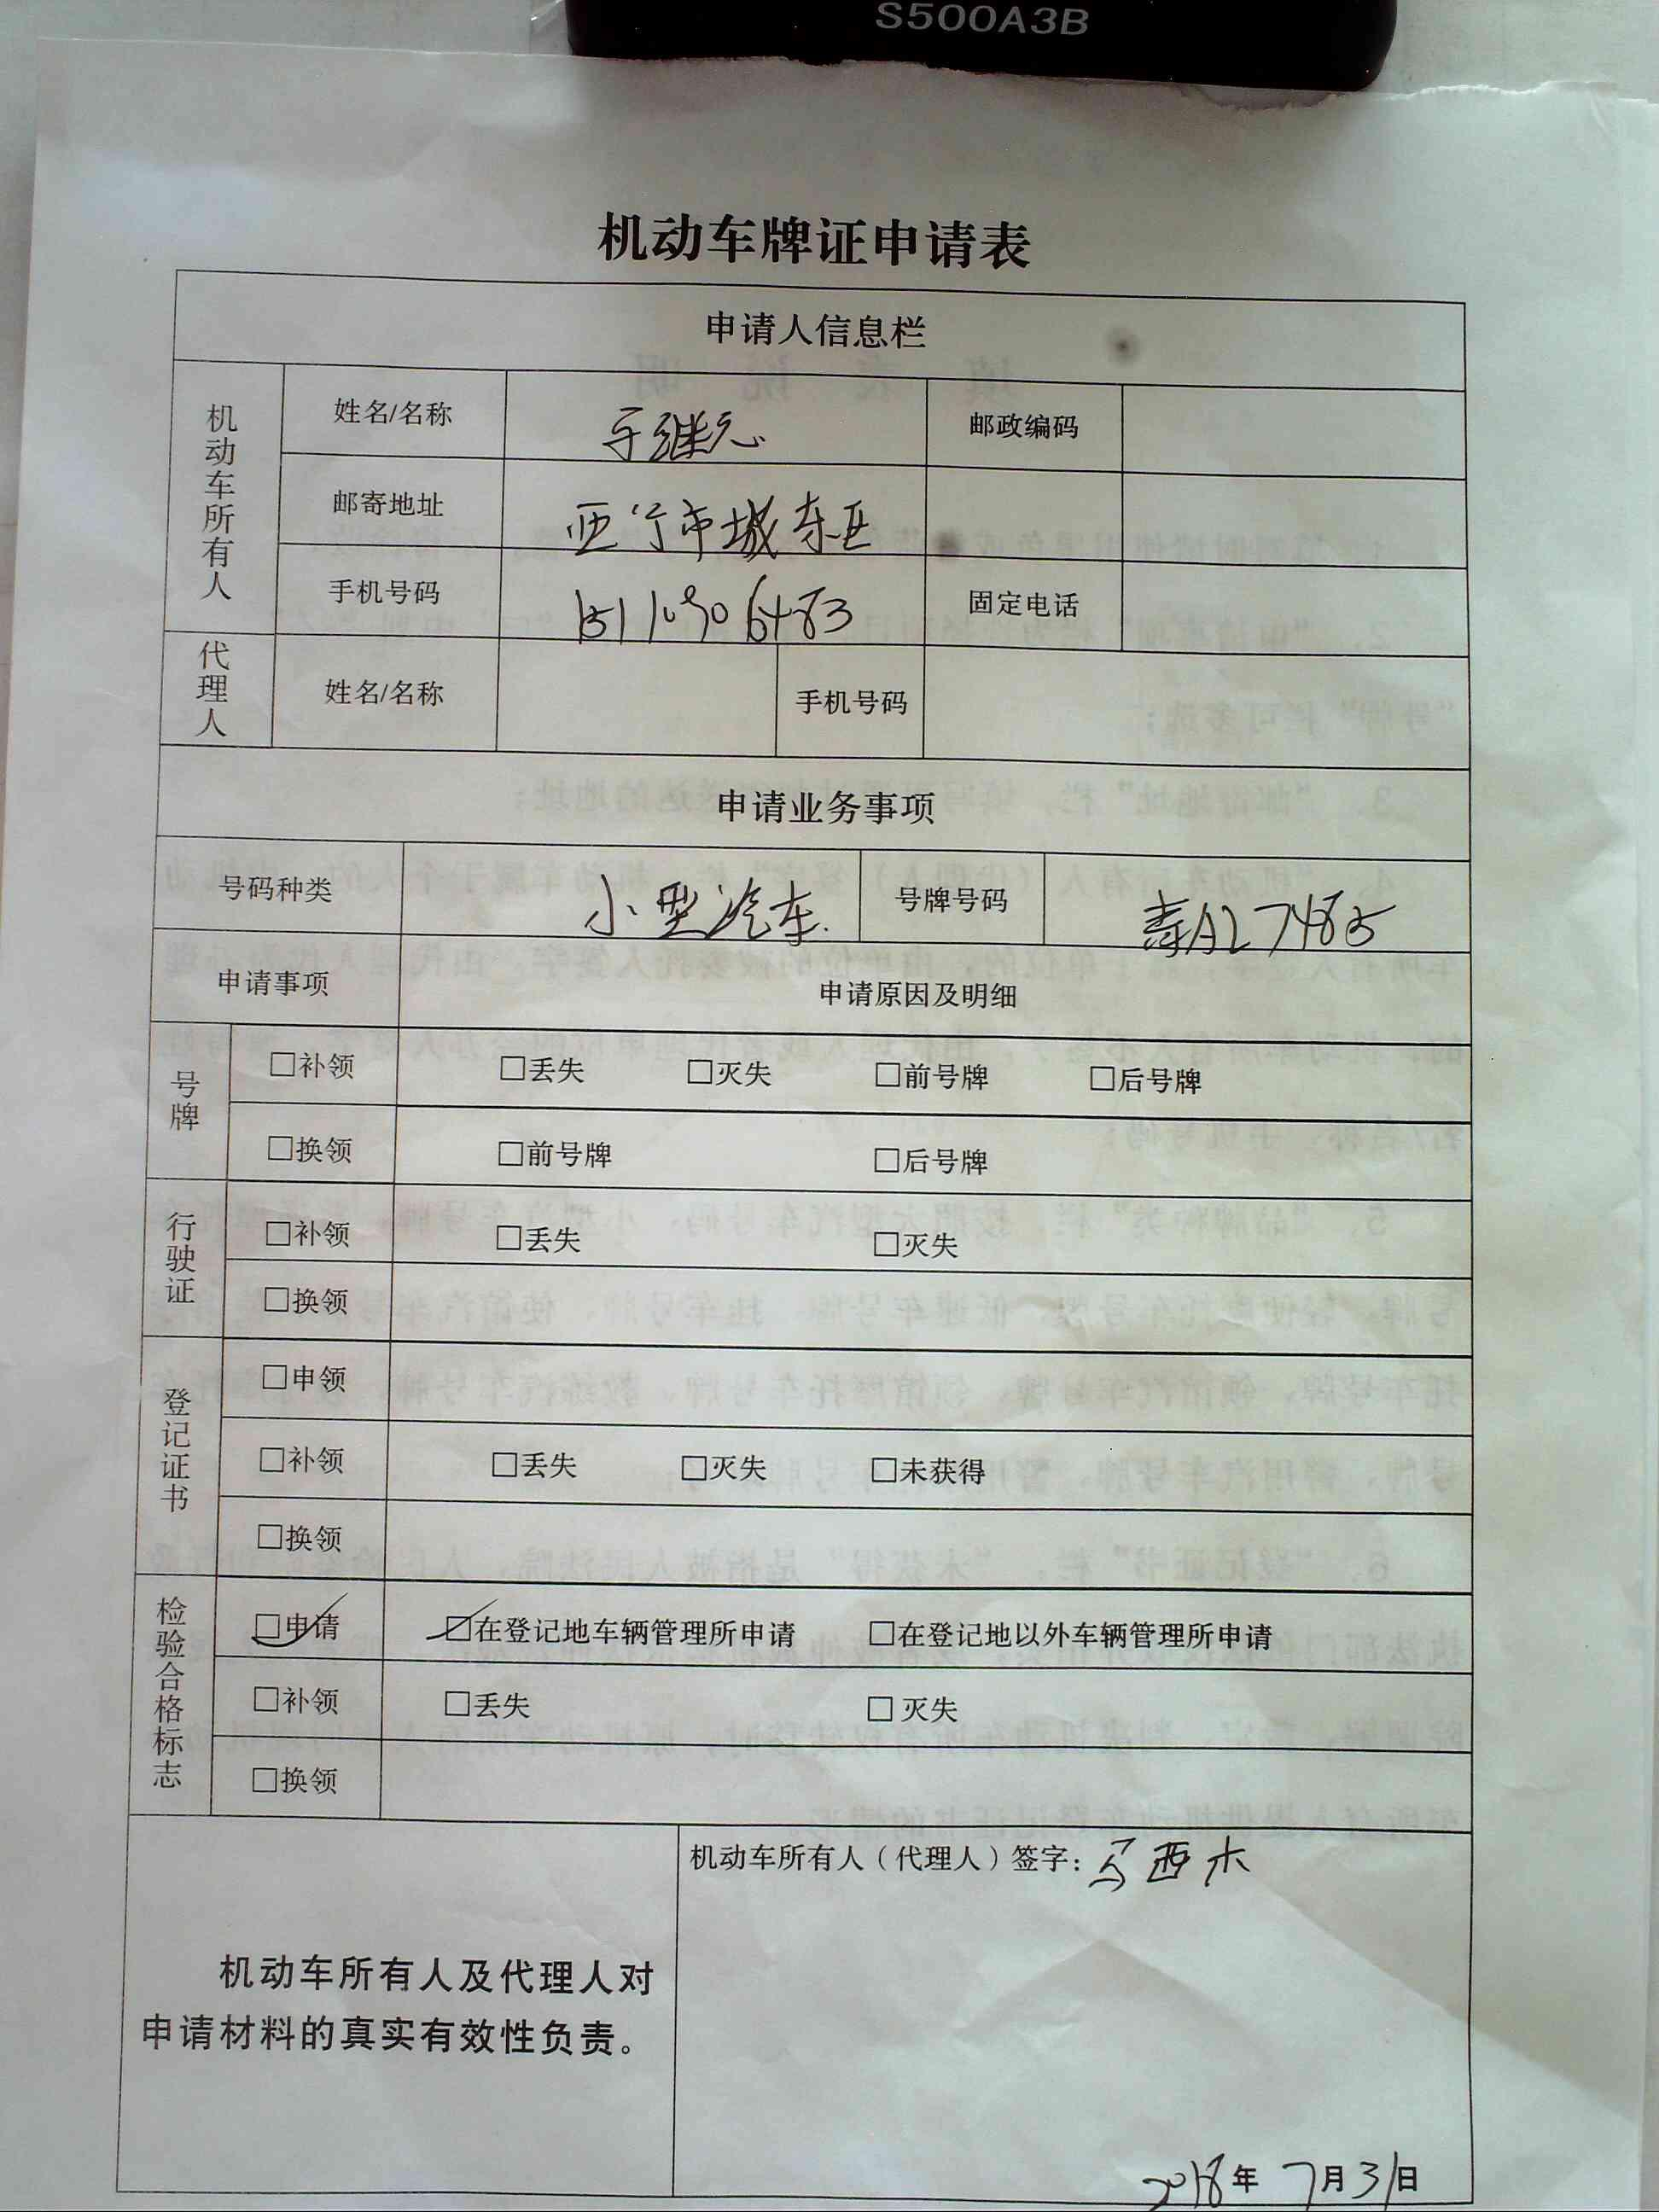 S500A3B
机动车牌证申请表
申请人信息栏
机动车所有人
姓名/名称 于继元 邮政编码
邮寄地址 西宁市城东区
手机号码 固定电话
代理人
姓名/名称 手机号码
申请业务事项
号码种类 小型汽车 号牌号码 青AL7485
申请事项 申请原因及明细
号牌
□补领 □丢失 □灭失 □前号牌 □后号牌
□换领 □前号牌 □后号牌
行驶证
□补领 □丢失 □灭失
□换领
登记证书
□申领
□补领 □丢失 □灭失 □未获得
□换领
检验合格标志
☑申请 ☑在登记地车辆管理所申请 □在登记地以外车辆管理所申请
□补领 □丢失 □灭失
□换领
机动车所有人及代理人对
申请材料的真实有效性负责。
机动车所有人(代理人)签字:马西木
2018年 7月31日